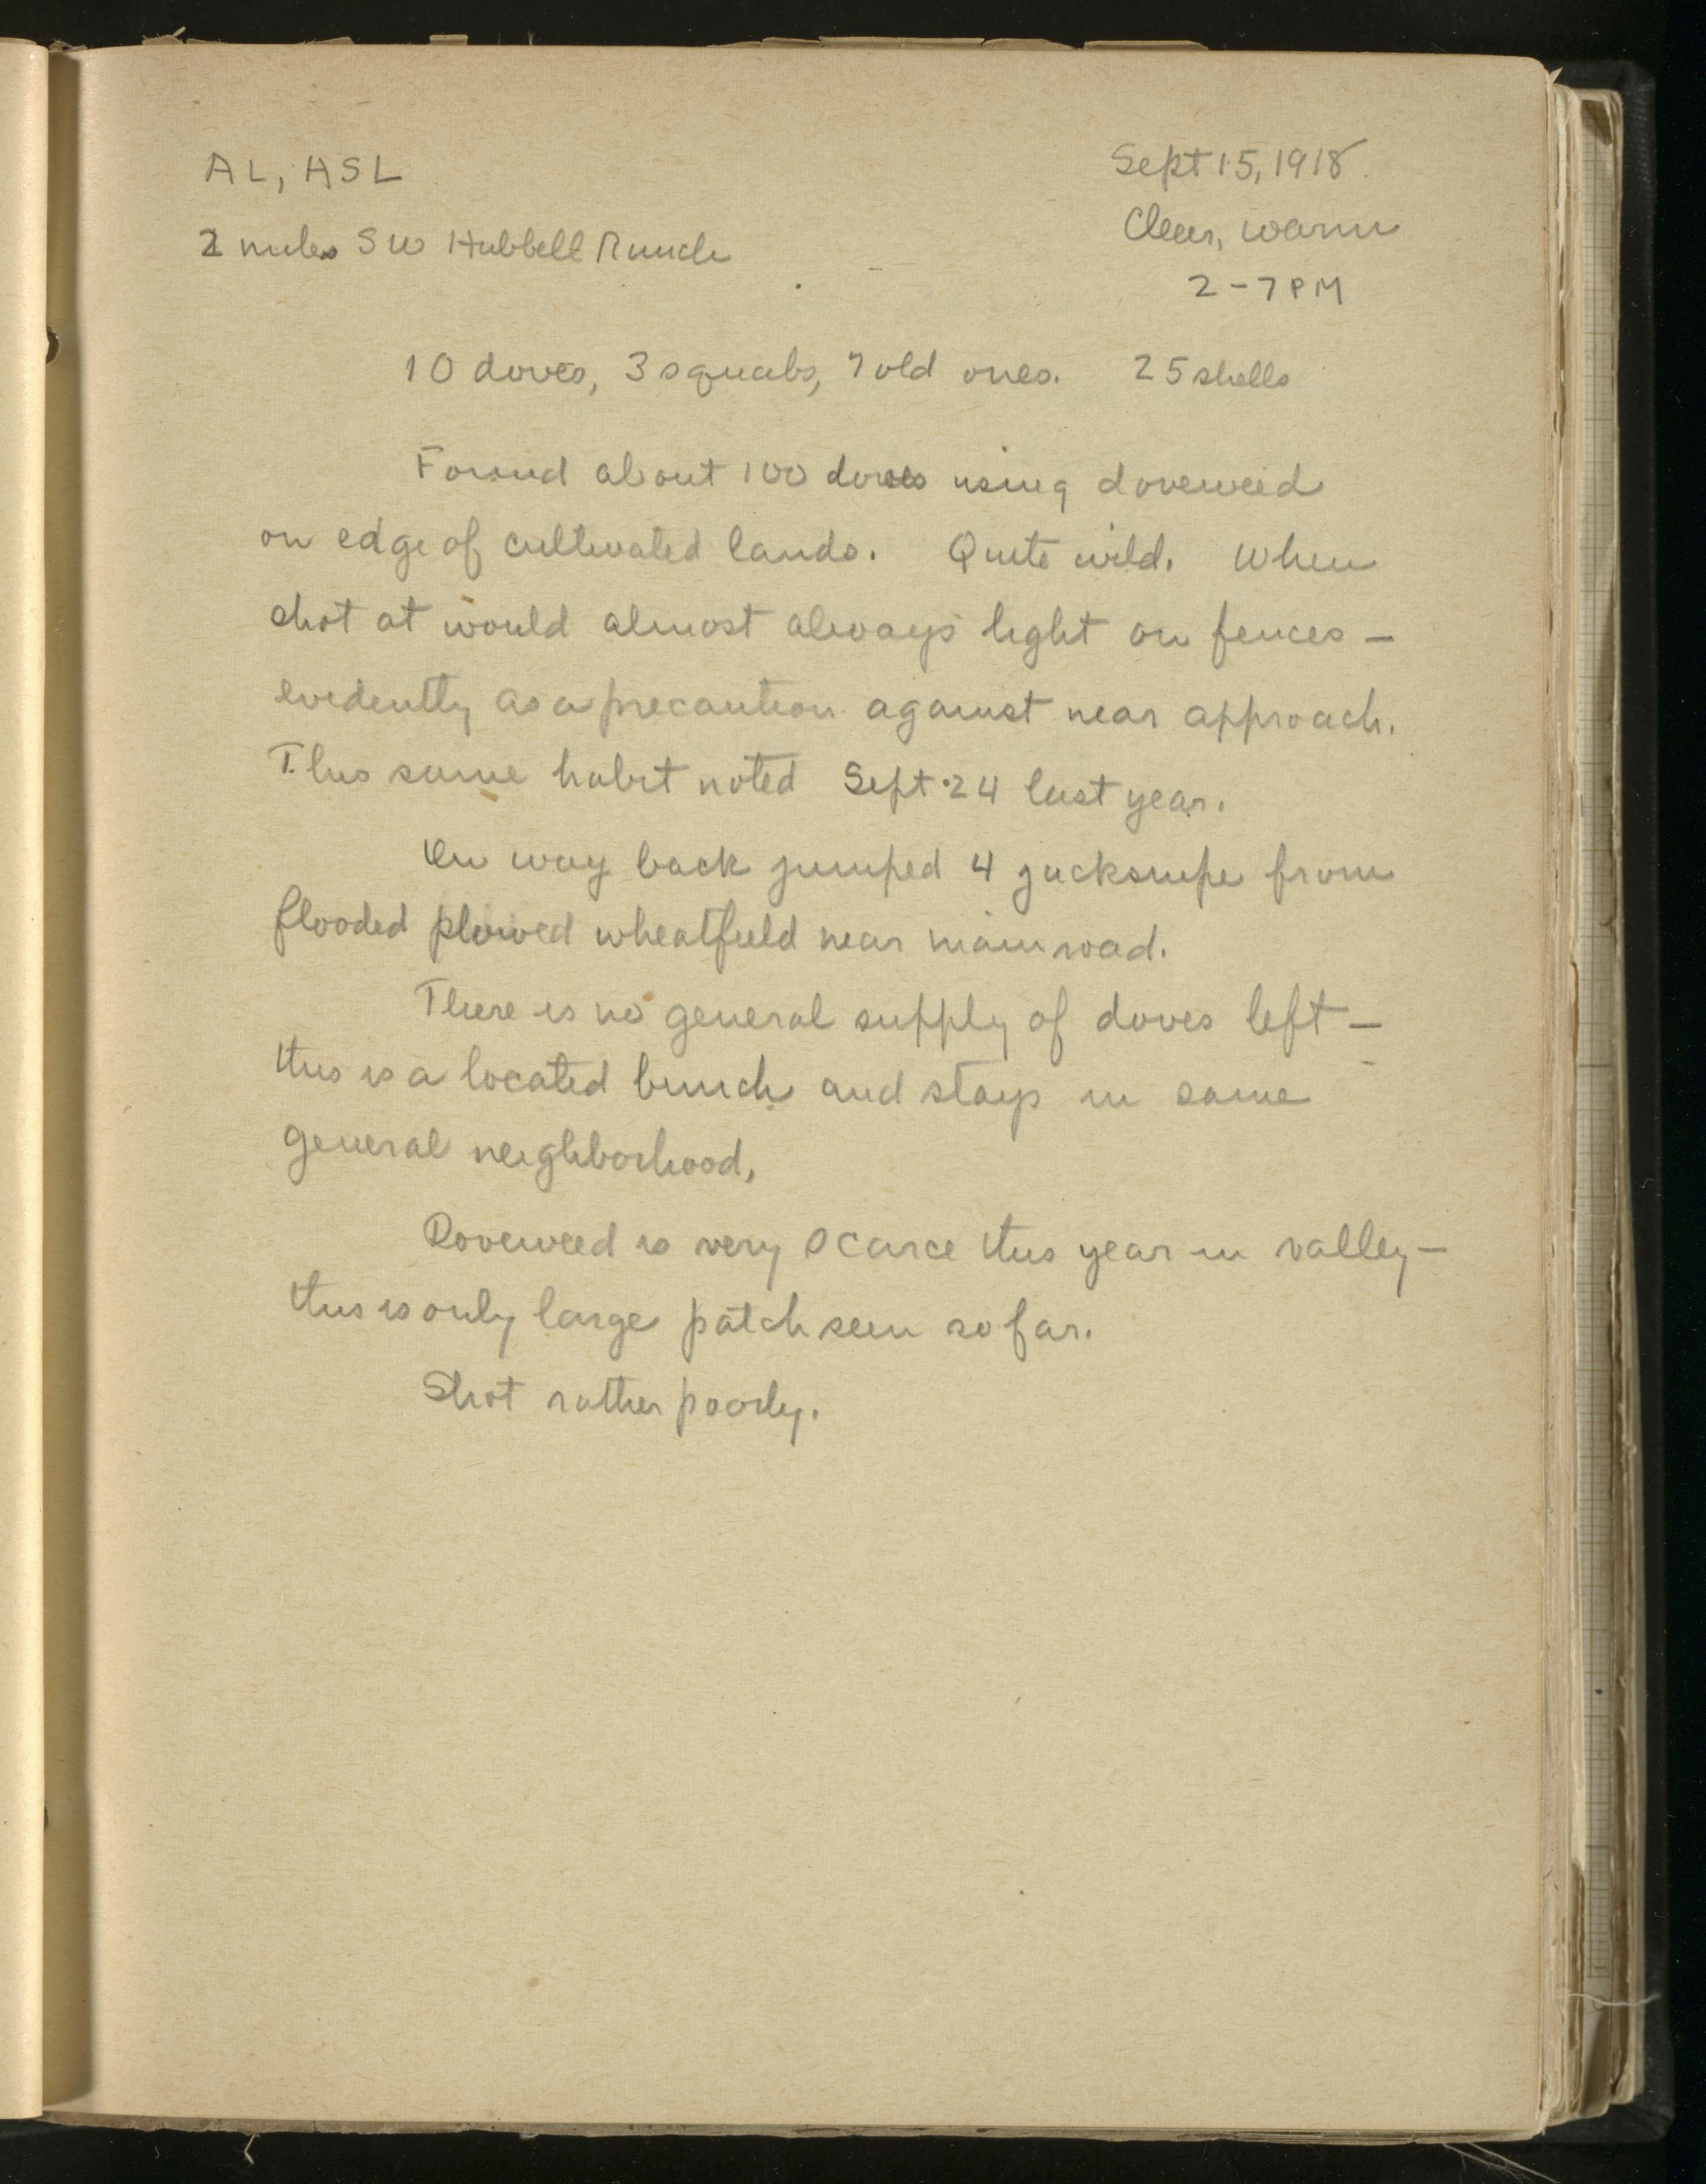 AL, HSL
Sept 15, 1918
2 miles SW Hubbell Ranch
Clear, warm
2-7 PM
10 doves, 3 squabs, 7 old ones. 25 shells
Found about 100 doves using doveweed
on edge of cultivated lands. Quite wild. When
shot at would almost always light on fences -
evidently as a precaution against near approach.
This same habit noted Sept. 24 last year.
On way back jumped 4 jacksnipe from
flooded plowed wheatfield near main road.
There is no general supply of doves left -
this is a located bunch and stays in same
general neighborhood,
Doveweed is very scarce this year in valley -
this is only large patch seen so far.
Shot rather poorly.